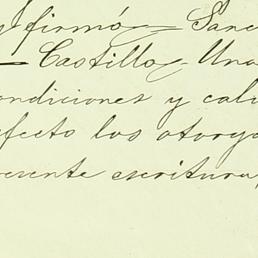 y firmó Sanc
Castillo - Una
ondiciones y cali
efecto los otorga
resente escritura,